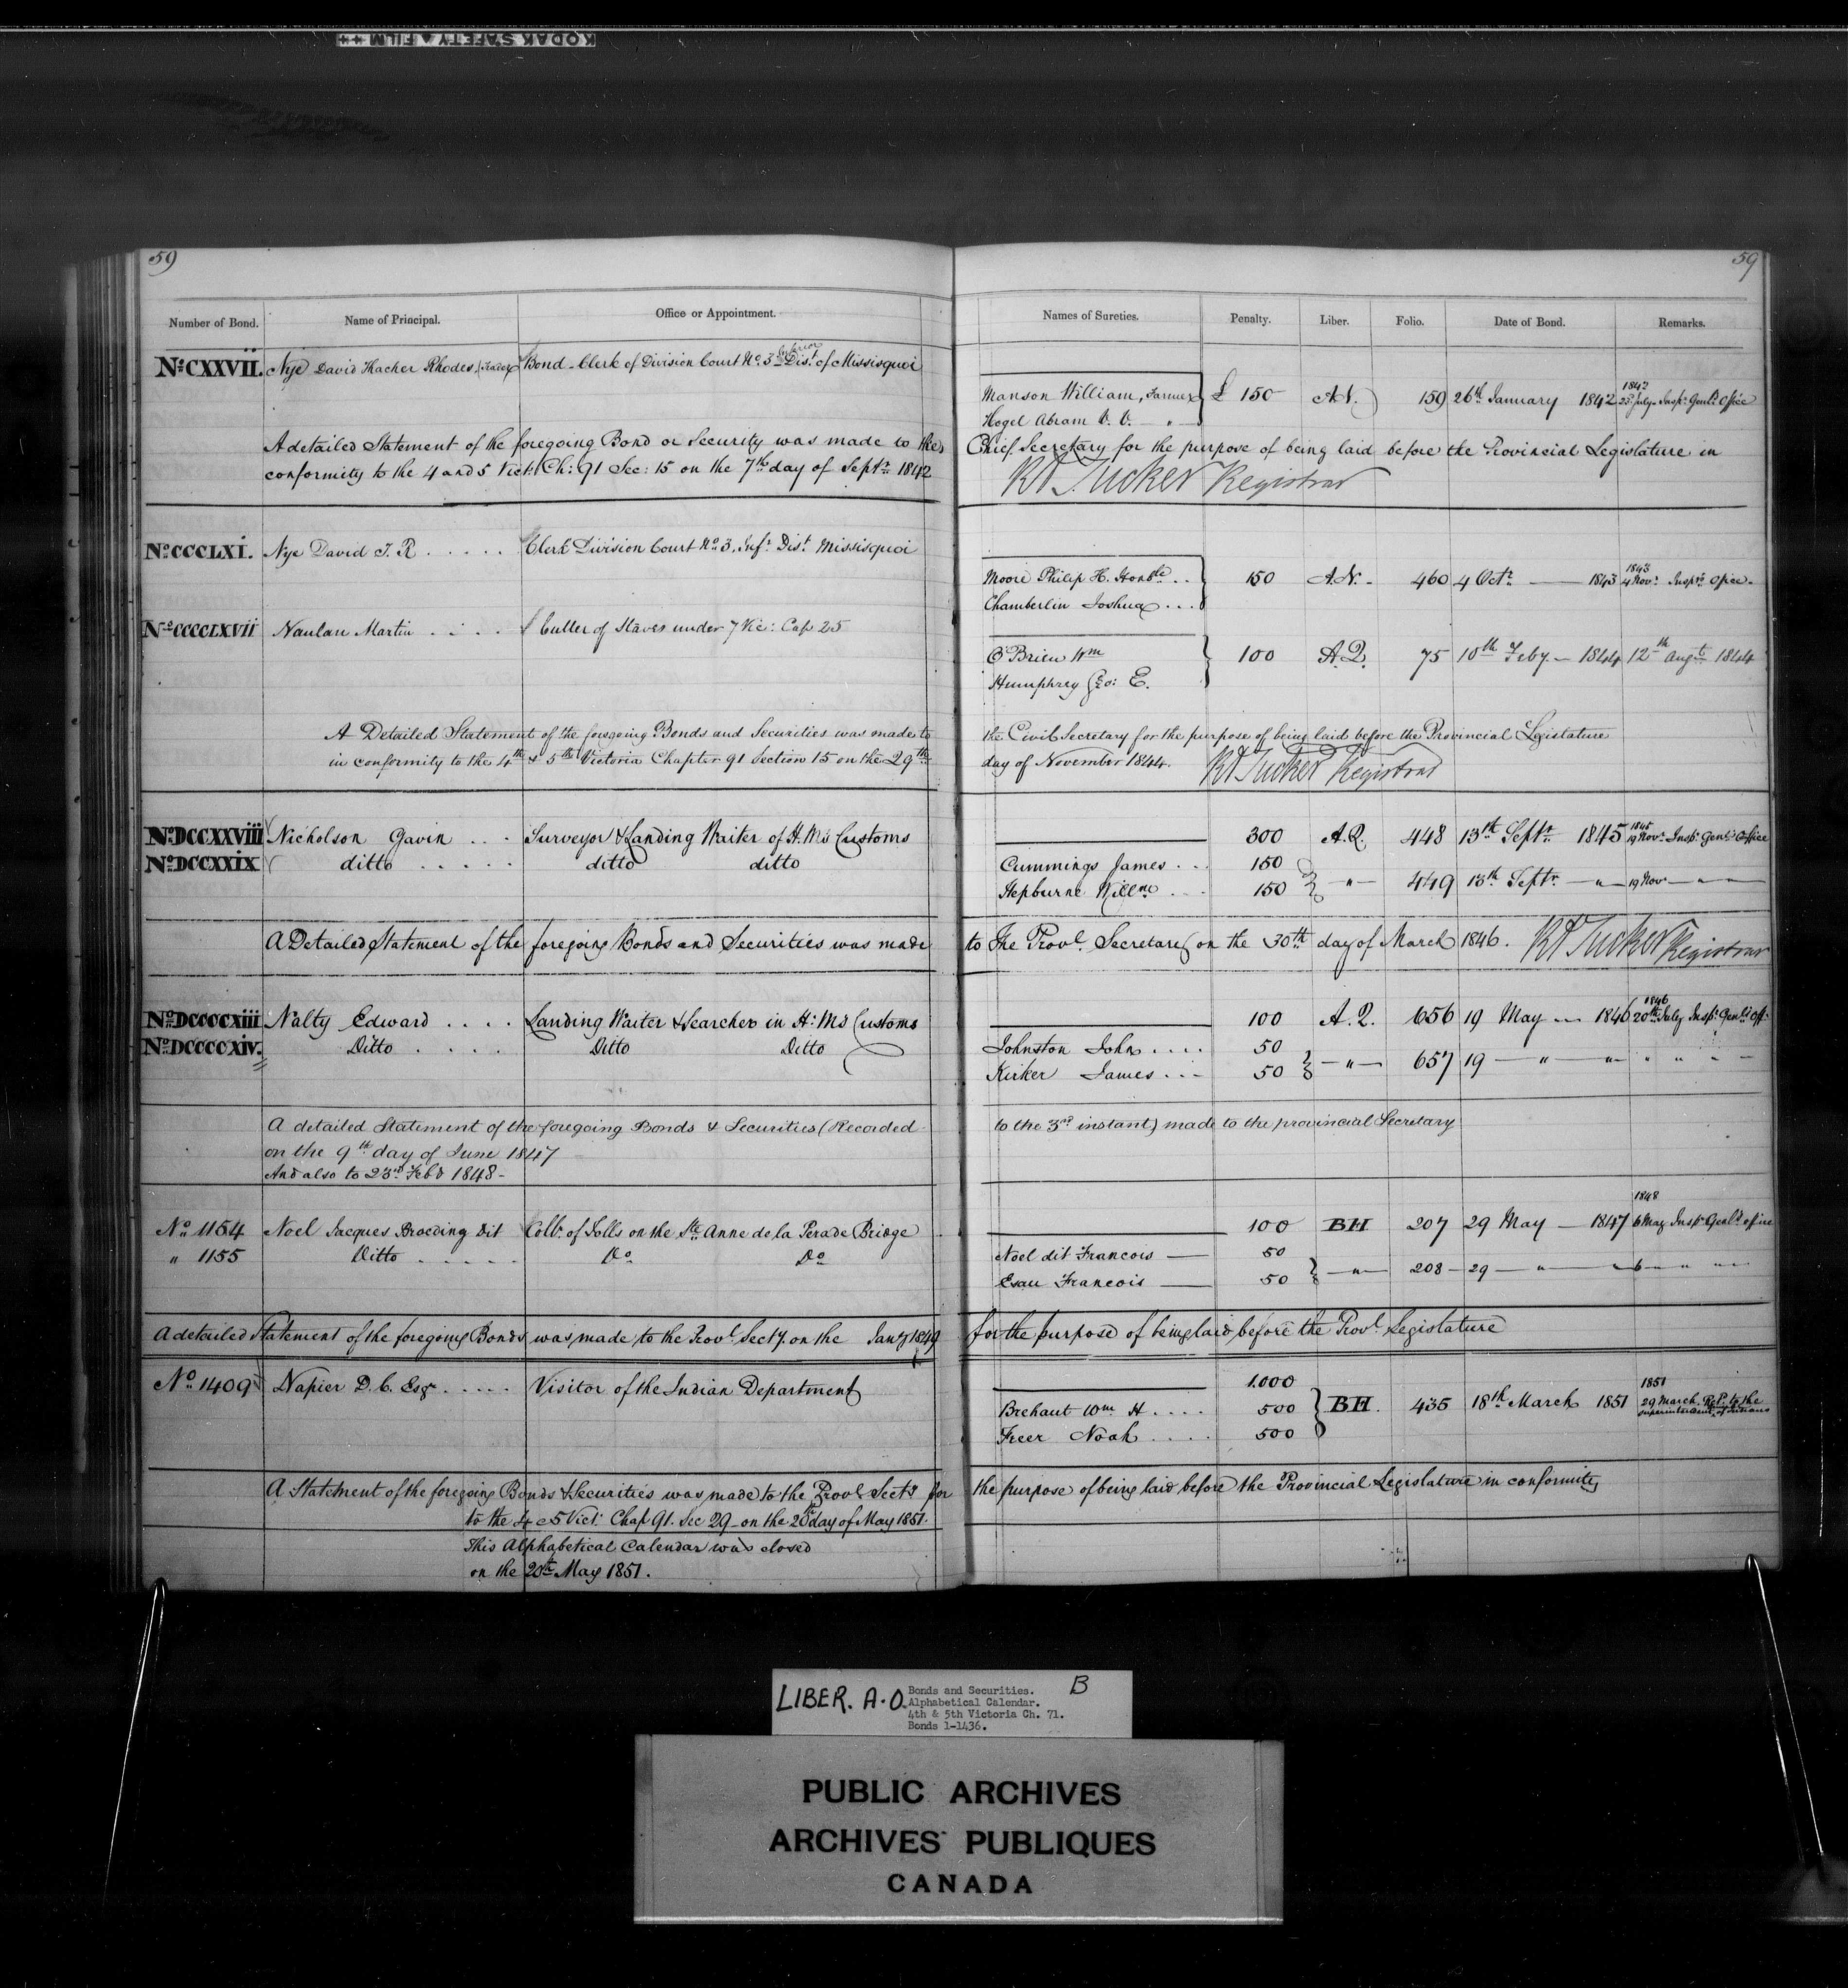 KODAK SAFETY FILM
59
59
Number of Bond. Name of Principal. Office or Appointment. Names of Sureties. Penalty. Liber. Folio. Date of Bond. Remarks.
No. CXXVII. Nye David Thacher Rhodes, (Trader) Bond - Clerk of Division Court No. 3 Inferior Dist. of Missisquoi
Manson William, Farmer £ 150 A.N. 159 26th January 1842 1842 23d July Inspr. Genls. Office
Hogel Abram V. V. "
A detailed Statement of the foregoing Bond or Security was made to the Chief Secretary for the purpose of being laid before the Provincial Legislature in
conformity to the 4 and 5 Vict: Ch: 91 Sec: 15 on the 7th day of Septr. 1842 Rd. Tucker Registrar
No. CCCLXI. Nye David T. R. . . . . . Clerk Division Court No. 3, Infr. Dist. Missisquoi
Moore Philip H. Honble. . . 150 A.N. - 460 4 Octr. — 1843 1843 4 Novr. Inspr. Office -
Chamberlin Joshua . . .
No. CCCCLXVII Nanlan Martin . . . . Culler of Staves under 7 Vic: Cap 25
O'Brien Wm 100 A.Q. 75 10th Feby. — 1844 12th Augt. 1844
Humphrey Geo: E.
A Detailed Statement of the foregoing Bonds and Securities was made to the Civil Secretary for the purpose of being laid before the Provincial Legislature
in conformity to the 4th & 5th Victoria Chapter 91 Section 15 on the 29th day of November 1844. Rd. Tucker Registrar
No. DCCXXVIII Nicholson Gavin . . . Surveyor & Landing Waiter of H. Ms. Customs 300 A.Q. 448 13th Septr. 1845 1845 19 Novr. Inspr. Genls. Office
No. DCCXXIX ditto . . . . . ditto ditto Cummings James . . . 150
Hepburne Willm. . . . 150 — " — 449 13th Septr. — " — 19 Nov — " —
A Detailed Statement of the foregoing Bonds and Securities was made to The Provl. Secretary on the 30th day of March 1846. Rd. Tucker Registrar
No. DCCCCXIII Nalty Edward . . . . Landing Waiter & Searcher in H: Ms. Customs 100 A.Q. 656 19 May — 1846 1846 20th July Inspr. Genls. Off.
No. DCCCCXIV. Ditto . . . . . Ditto Ditto Johnston John . . . . 50
Kirker James . . . 50 — " — 657 19 — " — " — " " " —
A detailed Statement of the foregoing Bonds & Securities (Recorded to the 3rd instant) made to the provincial Secretary
on the 9th day of June 1847
And also to 23rd Feby 1848 -
No. 1154 Noel Jacques Brocding dit Collr. of Tolls on the Ste. Anne de la Perade Bridge 100 BH 207 29 May — 1847 1848 6 May Inspr. Genls. office
" 1155 Ditto . . . . . Do. Do. Noel dit Francois — 50
Esau Francois — 50 — " — 208 - 29 — " — " 6 — " "
A detailed Statement of the foregoing Bonds was made to the Provl. Secty. on the Jany 1849 for the purpose of being laid before the Provl. Legislature
No. 1409 Napier D. C. Esqr. . . . . . Visitor of the Indian Department 1.000
Brehaut Wm. H . . . . 500 BH. 435 18th March 1851 1851 29 March. Rept. to the superintendent of Indians
Freer Noah . . . . 500
A Statement of the foregoing Bonds & Securities was made to the Provl. Secty for the purpose of being laid before the Provincial Legislature in conformity
to the 4 & 5 Vict: Chap 91. Sec 29 - on the 20th day of May 1851.
This Alphabetical Calendar was closed
on the 20th May 1851.
LIBER. A.O. B
Bonds and Securities.
Alphabetical Calendar.
4th & 5th Victoria Ch. 71.
Bonds 1-1436.
PUBLIC ARCHIVES
ARCHIVES PUBLIQUES
CANADA